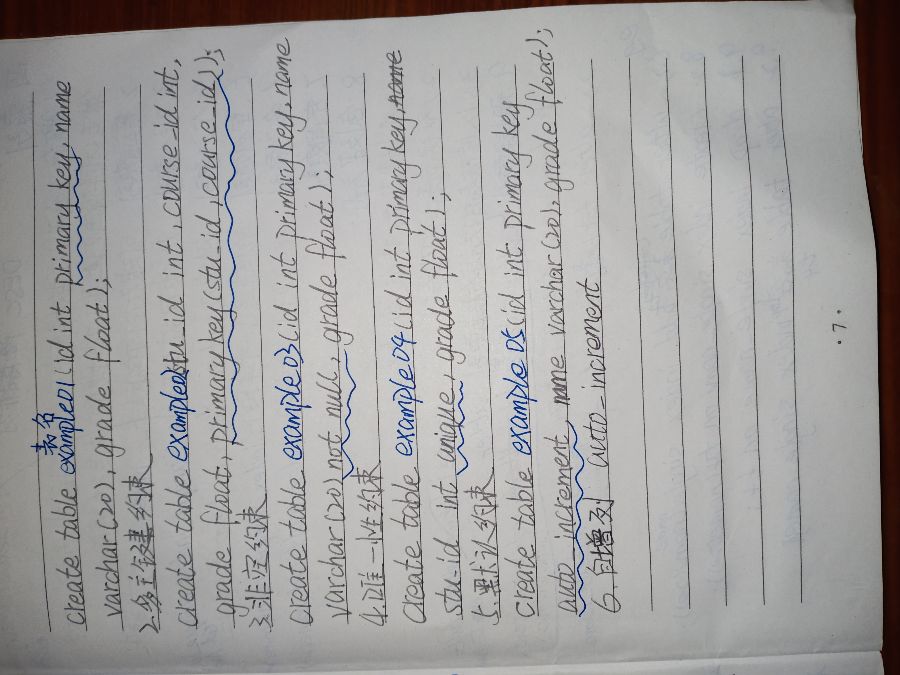 表名
create table example01(id int primary key, name
varchar(20), grade float);
2.多主键约束
create table example02(stu_id int, course_id int,
grade float, primary key(stu-id, course_id));
3.非空约束
create table example03(id int primary key, name
varchar(20) not null, grade float);
4.唯一性约束
create table example04(id int primary key, name
stu-id int unique, grade float);
5.默认约束
create table example05(id int primary key
auto_increment, name varchar(20), grade float);
6.自增列 auto_increment
·7·